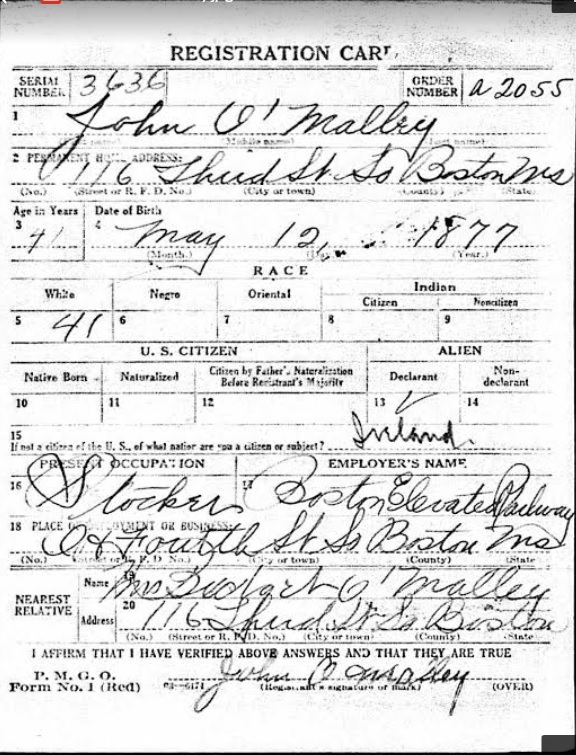 REGISTRATION CARD
SERIAL NUMBER 3636 ORDER NUMBER a 2055
1 John O'Malley
(Middle name) (Last name)
2 PERMANENT HOME ADDRESS:
116 Third St So Boston Ms
(No.) (Street or R. F. D. No.) (City or town) (County) (State)
Age in Years Date of Birth
3 41 4 May 12, 1877
(Month.) (Day.) (Year.)
RACE
White Negro Oriental Indian
Citizen Noncitizen
5 41 6 7 8 9
U. S. CITIZEN ALIEN
Native Born Naturalized Citizen by Father's Naturalization Before Registrant's Majority Declarant Non-declarant
10 11 12 13 ✓ 14
15 If not a citizen of the U. S., of what nation are you a citizen or subject? Ireland.
PRESENT OCCUPATION EMPLOYER'S NAME
16 Stocker 17 Boston Elevated Railway
18 PLACE OF EMPLOYMENT OR BUSINESS:
Fourth St So Boston Ms
(No.) (Street or R. F. D. No.) (City or town) (County) (State)
NEAREST RELATIVE
Name 19 Mrs Bridget O'Malley
Address 20 116 Third St So Boston
(No.) (Street or R. F. D. No.) (City or town) (County) (State)
I AFFIRM THAT I HAVE VERIFIED ABOVE ANSWERS AND THAT THEY ARE TRUE
P. M. G. O.
Form No. 1 (Red) 03-6171 John O'Malley
(Registrant's signature or mark) (OVER)